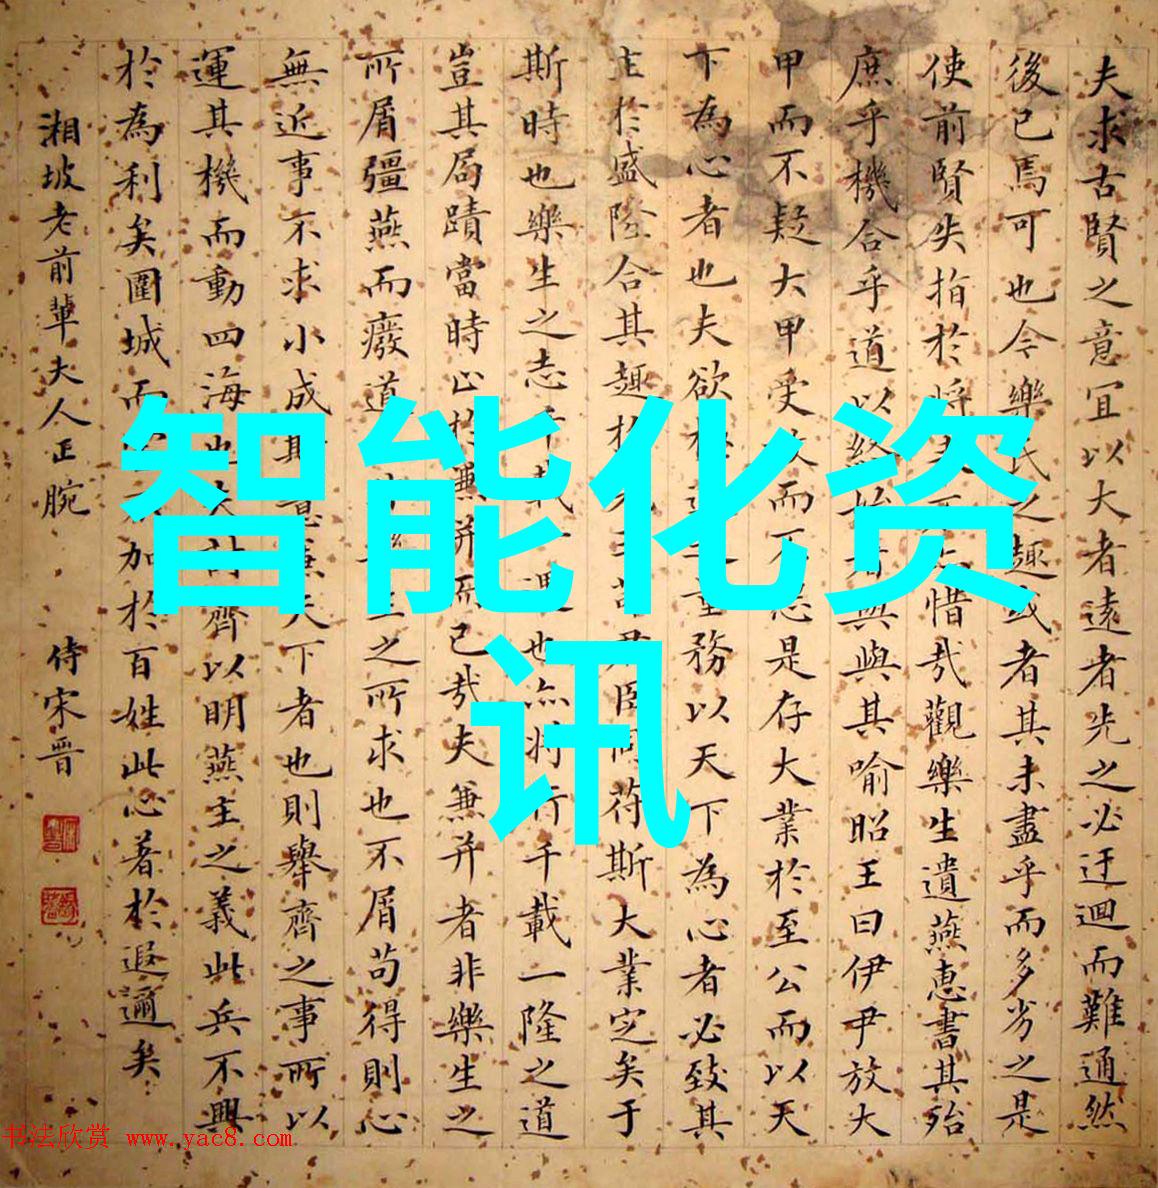 智能化资
讯
夫求古賢之意宜以大者遠者先之必迂迴而難通然
後已焉可也今樂氏之趣或者其未盡乎而多劣之是
使前賢失指於將惜哉觀樂生遺燕惠書其殆
庶乎機合乎道以終始者與與其喻昭王曰伊尹放大
甲而不疑大甲受放而不怨是存大業於至公而以天
下為心者也夫欲極道之量務以天下為心者必致其
主於盛隆合其趣於先王苟君臣同符斯大業定矣于
斯時也樂生之志千載一遇也亦將行千載一隆之道
豈其局蹟當時止於兼并而已哉夫兼并者非樂生之
所屑彊燕而廢道生之所求也不屑苟得則心
無近事不求小成斯意兼天下者也則舉齊之事所以
運其機而動四海也夫討齊以明燕主之義此兵不興
於為利矣圍城而加於百姓此心著於遐邇矣
湘坡老前輩夫人正腕 侍宋晉
书法欣赏 www.yac8.com